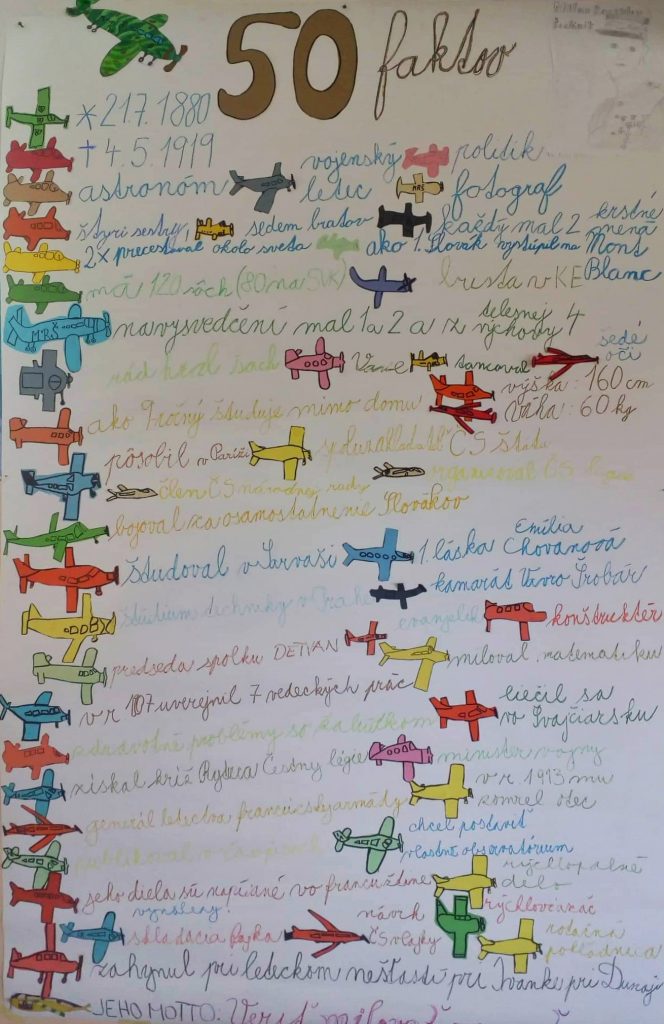 50 faktov
* 21.7.1880
† 4.5.1919
astronóm vojenský letec politik
MRŠ fotograf
štyri sestry, sedem bratov každý mal 2 krstné mená
2x precestoval okolo sveta ako 1. Slovák vystúpil na Mont Blanc
má 120 sôch (80 na SVK) busta v KE
MRŠ na vysvedčení mal 1 a 2 a z telesnej výchovy 4
rád hral šach tancoval šedé oči
ako 9 ročný študuje mimo domu výška: 160 cm
váha: 60 kg
pôsobil v Paríži ČS štátu
člen ČS národnej rady organizoval ČS
bojoval za osamostatnenie Slovákov
študoval v Sarvaši 1. láska Emília Chovanová
kamarát Vavro Šrobár
štúdium techniky v Prahe evanjelik konštruktér
predseda spolku DETVAN miloval matematiku
v r. uverejnil 7 vedeckých prác liečil sa vo Švajčiarsku
zdravotné problémy so žalúdkom minister vojny
získal kríž Rytiera Čestnej légie v r. 1893 mu zomrel otec
generál letectva francúzskej armády
publikoval v chcel postaviť vlastné observatórium
jeho diela sú nepísané vo francúzštine rýchlopalné delo
vynálezy: skladacia fajka návrh ČS vlajky rýchloviazač rotačná pokladnica
zahynul pri leteckom nešťastí pri Ivanke pri Dunaji
JEHO MOTTO: Veriť milovať